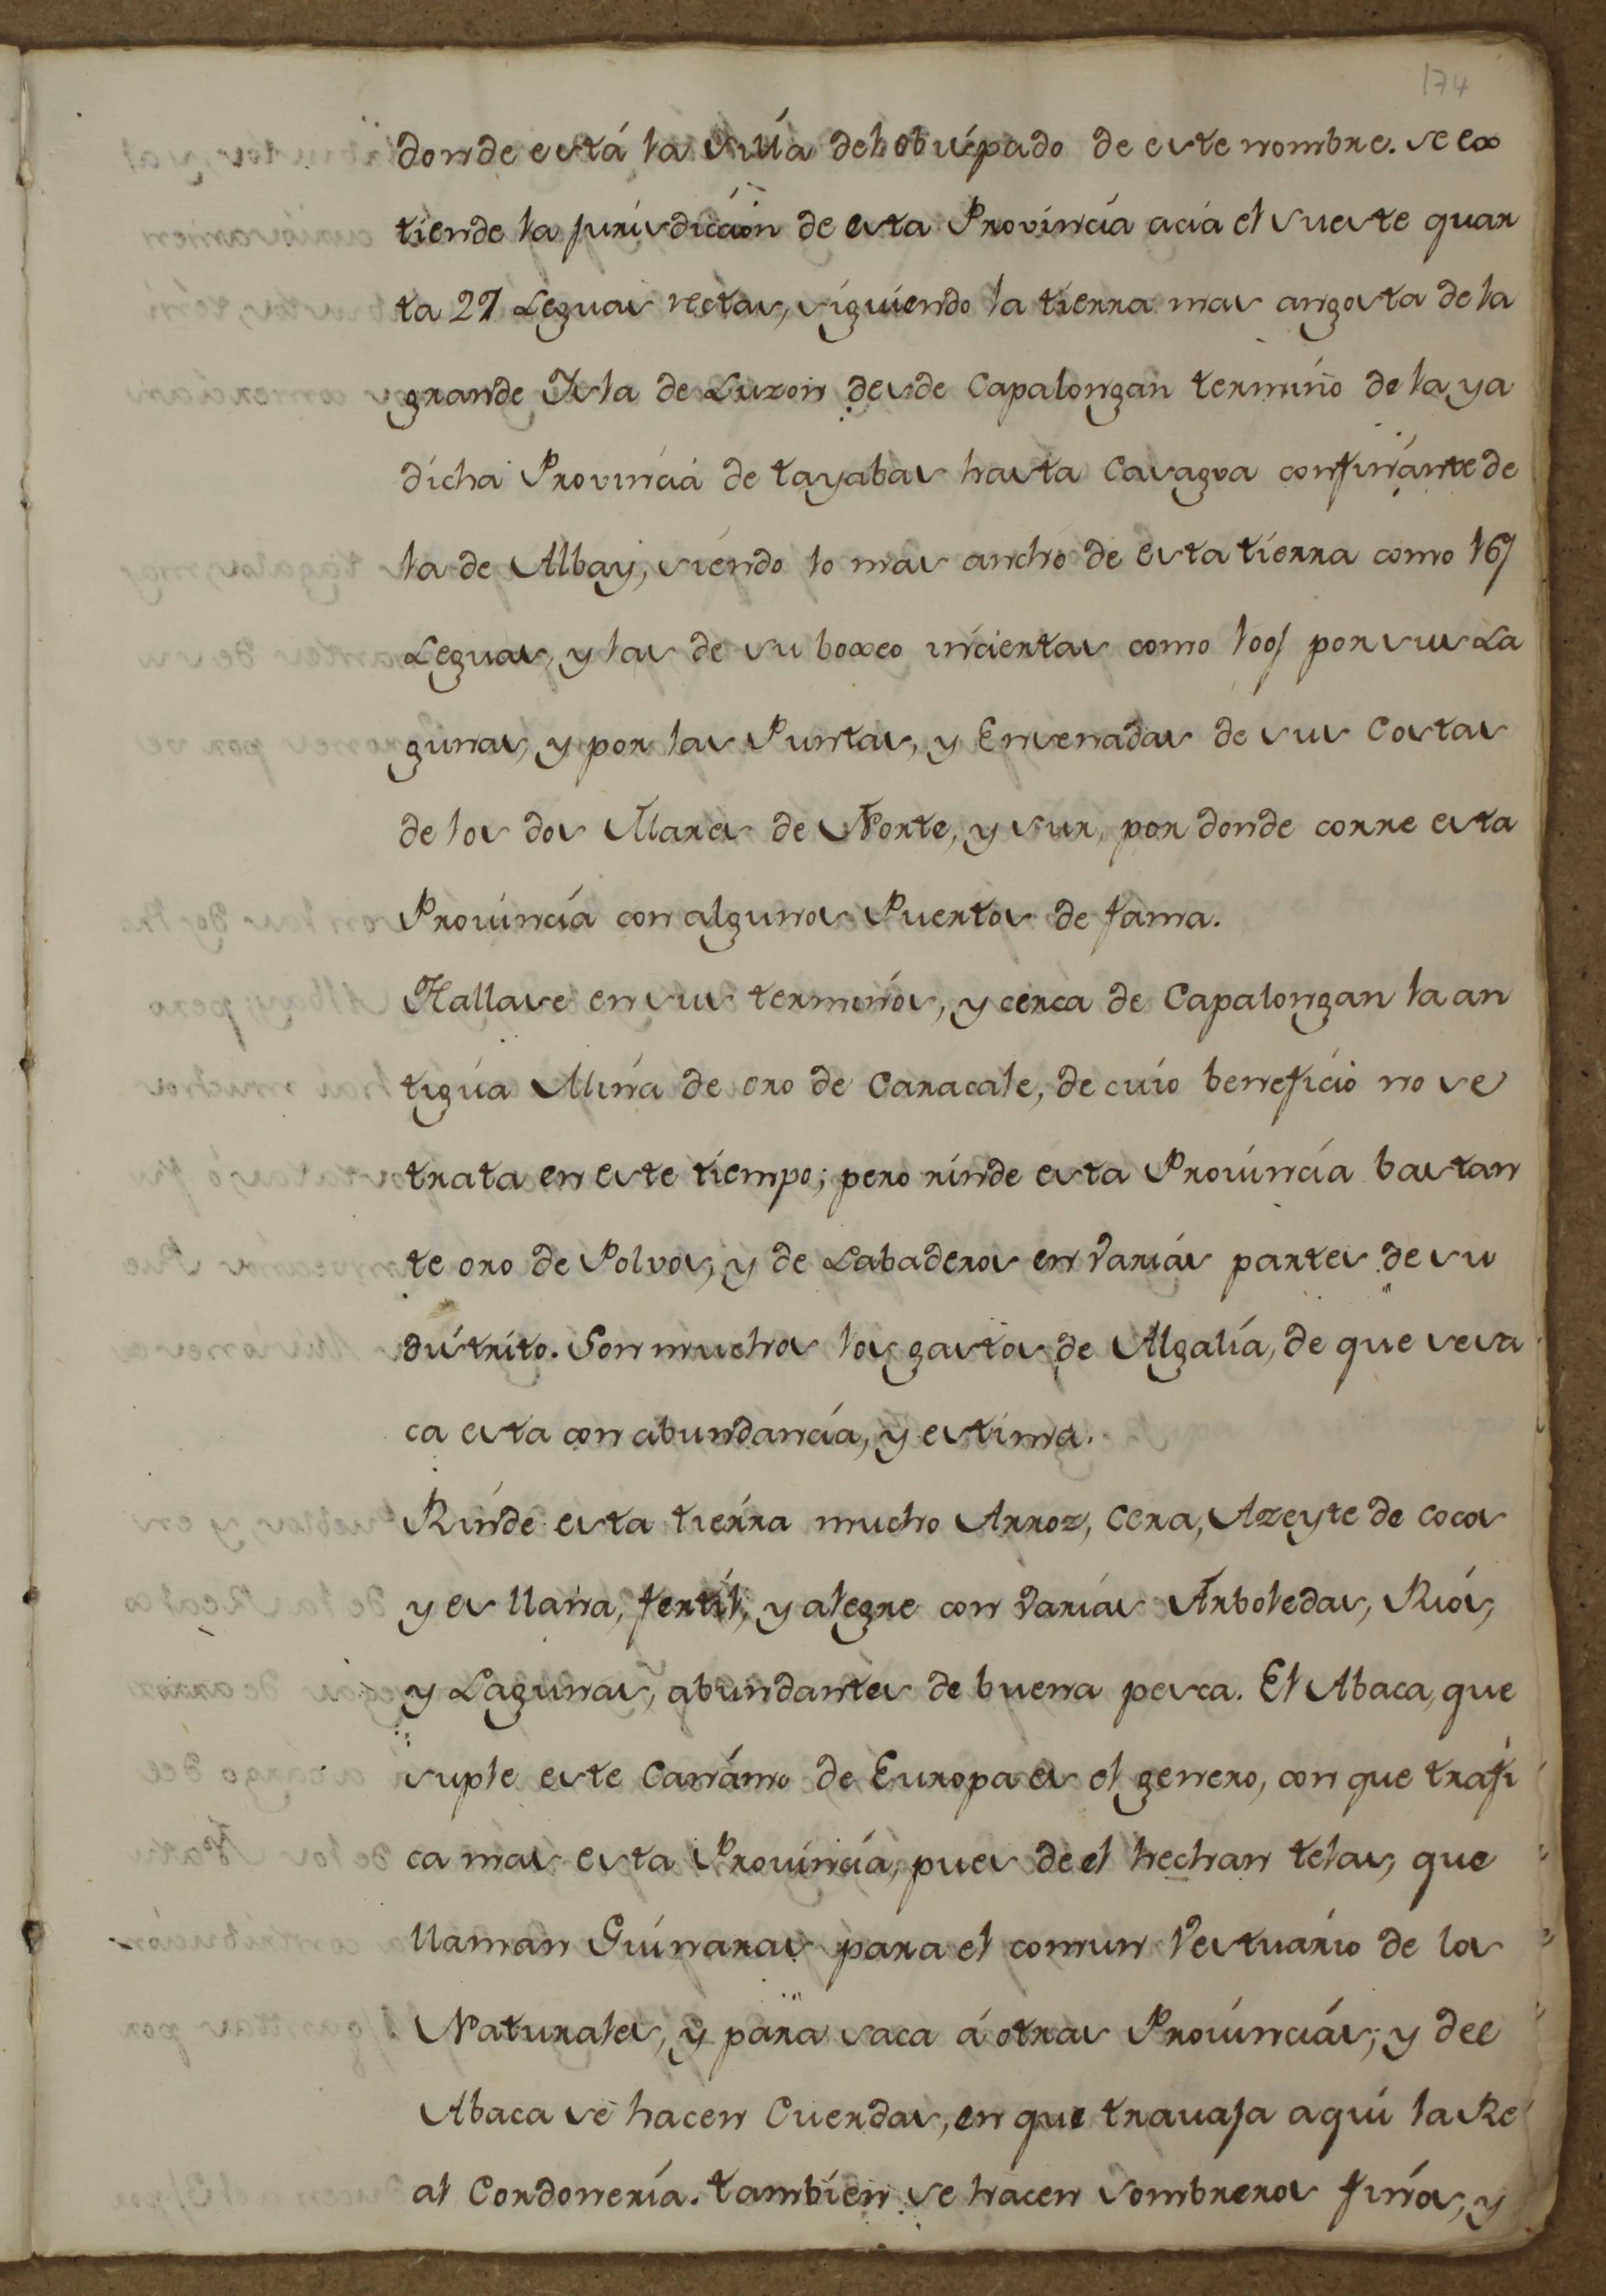 174
donde está la silla del obispado de este nombre. se ex
tiende la jurisdiccion de esta Provincia acia el sueste quar
ta 27 Leguas rectas, siguiendo la tierra mas angosta de la
grande Isla de Luzon desde Capalongan termino de la ya
dicha Provincia de tayabas hasta Casagsa confinante de
la de Albay, siendo lo mas ancho de esta tierra como 16/
Leguas, y las de su boxeo inciertas como 100/ por sus La
gunas, y por las Puntas, y Ensenadas de sus Costas
de los dos Mares de Norte, y sur, por donde corre esta
Provincia con algunos Puertos de fama.
Hallase en sus terminos, y cerca de Capalongan la an
tigua Mina de oro de Caracale, de cuio beneficio no se
trata en este tiempo; pero rinde esta Provincia bastan
te oro de Polvos, y de Labaderos en varias partes de su
distrito. Son muchos los gastos de Algalia, de que se sa
ca esta con abundancia, y estima.
Rinde esta tierra mucho Arroz, Cera, Azeyte de cocos
y es llana, fertil, y alegre con varias Arboledas, Rios,
y Lagunas, abundantes de buena pesca. El Abaca, que
suple este Canamo de Europa es el genero, con que trafi
ca mas esta Provincia, pues de el hechan telas, que
llaman Guinaras para el comun Vestuario de los
Naturales, y para saca á otras Provincias; y del
Abaca se hacen Cuerdas, en que travaja aqui la Re
al Cordoneria. tambien se hacen sombreros finos, y